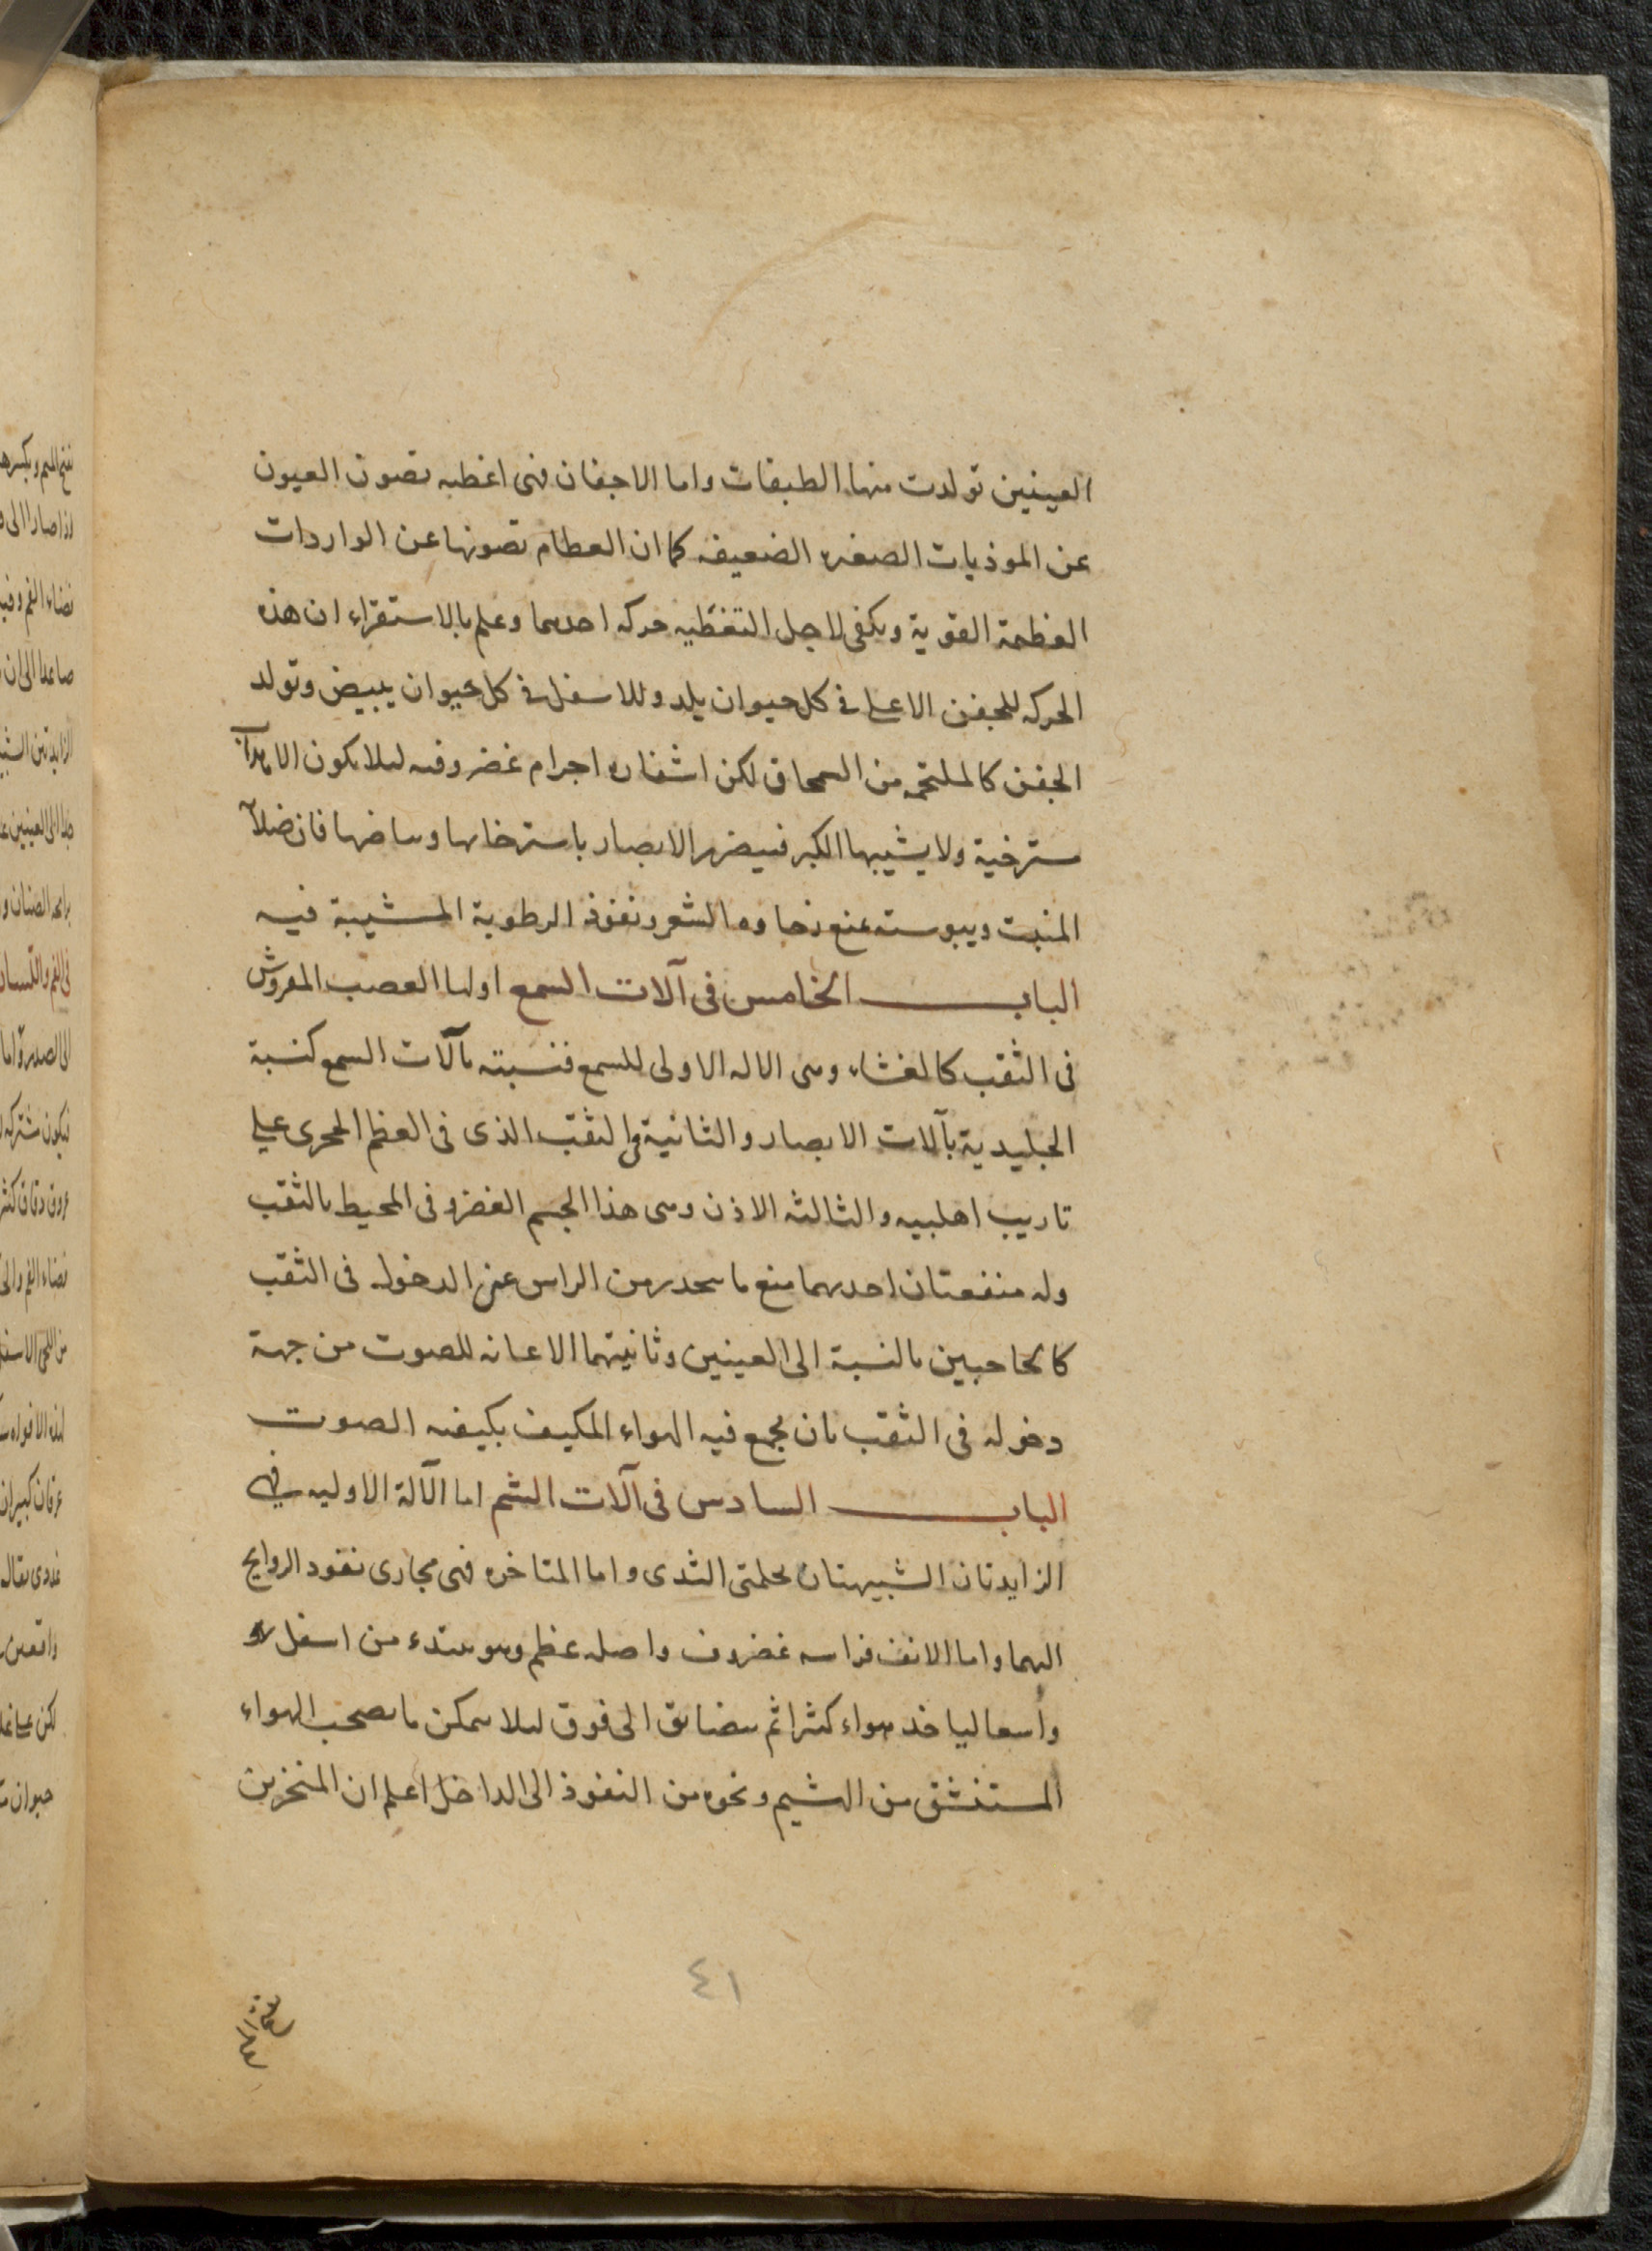 العينين تولدت منها الطبقات واما الاجفان فهى اغطيه تصون العيون
عن الموذيات الصغيره الضعيفه كما ان العظام تصونها عن الواردات
العظيمة القوية ويكفى لاجل التغطيه حركه احدىهما وعلم بالاستقراء ان هذه
الحركه للجفن الاعلى فى كل حيوان يلد وللاسفل فى كل حيوان يبيض وتولد
الجفن كالملتحمه من السمحاق لكن اشفاره اجرام غضروفيه لىلا يكون الاهداب
مسترخية ولا يشيبها الكبر فيضر الابصار باسترخايها وبياضها فان صلابة
المنبت ويبوسته يمنع رخاوه الشعر ونفوذ الرطوبة المشيبة فيه
الباب الخامس فى آلات السمع اولها العصب المفروش
فى الثقب كالغشاء وهى الاله الاولى للسمع فنسبته بآلات السمع كنسبة
الجليدية بآلات الابصار والثانية هى الثقب الذى فى العظم الحجرى على
تاريب اهلبيه والثالثه الاذن وهى هذا الجسم الغضروفى المحيط بالثقب
وله منفعتان احديهما منع ما ينحدر من الراس عن الدخول فى الثقب
كالحاجبين بالنسبة الى العينين وثانيتهما الاعانه للصوت من جهة
دخوله فى الثقب بان يجمع فيه الهواء المكيف بكيفيه الصوت
الباب السادس فى آلات الشم اما الآلة الاوليه فهى
الزايدتان الشبيهتان بحلمتى الثدى واما المتاخره فهى مجارى نفوذ الروايح
اليهما واما الانف فراسه غضروف واصله عظم وهو يبتدء من اسفل
واسعا لياخذ هواء كثيرا ثم يتضايق الى فوق لىلا يتمكن ما يصحب الهواء
المستنشق من الهشيم ونحوه من النفوذ الى الداخل اعلم ان المنخرين
٤١